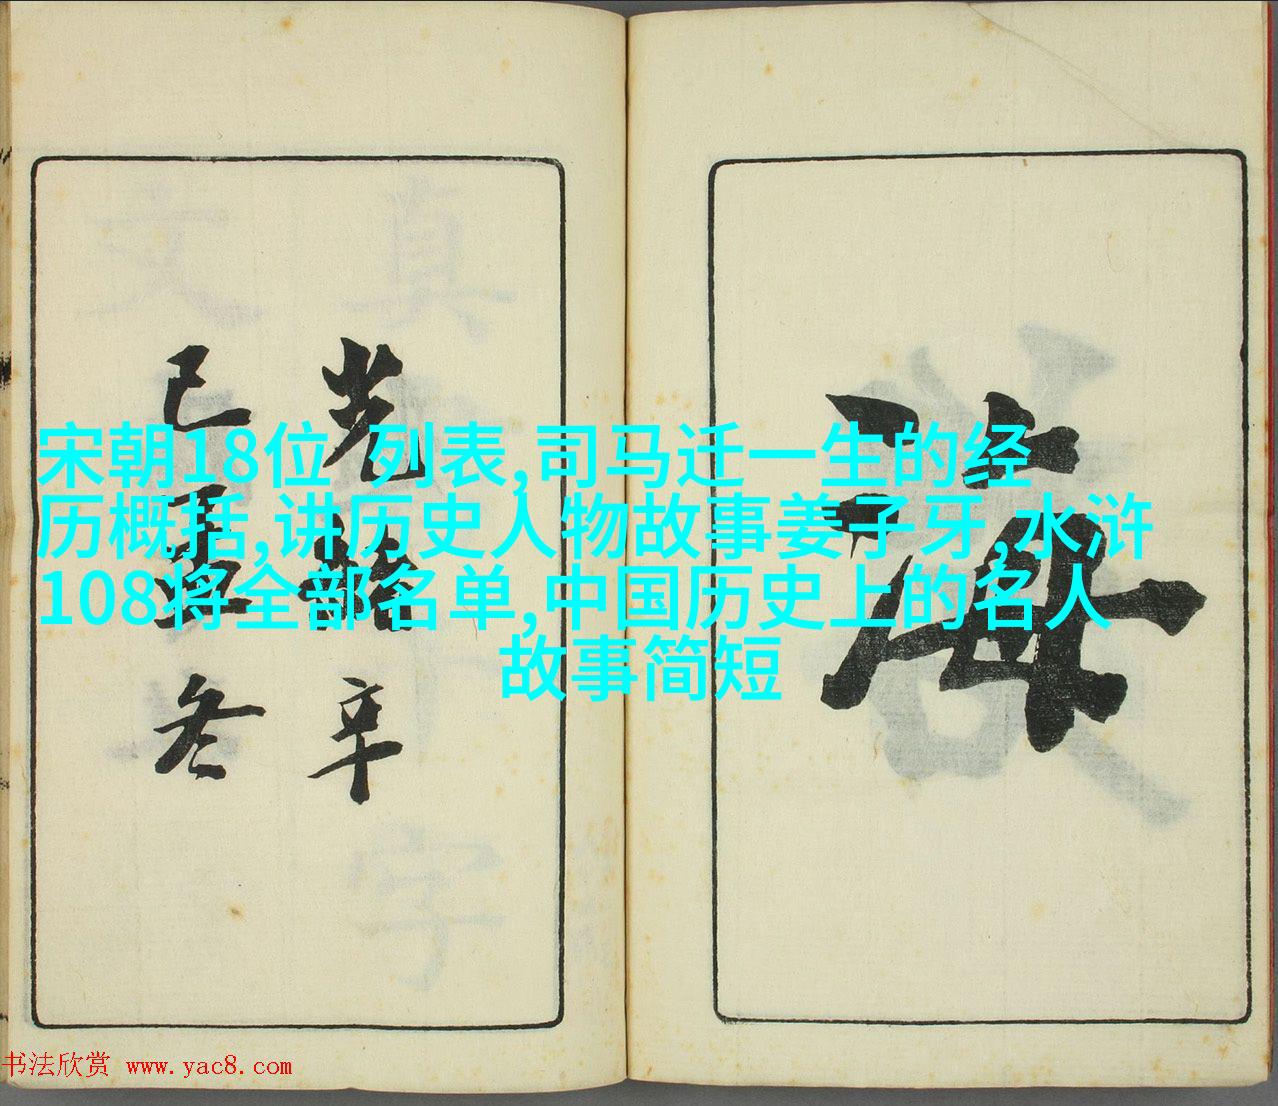 海
光緒辛
巳孟冬
宋朝18位 列表,司马迁一生的经
历概括,讲历史人物故事姜子牙,水浒
108将全部名单,中国历史上的名人
故事简短
书法欣赏 www.yac8.com